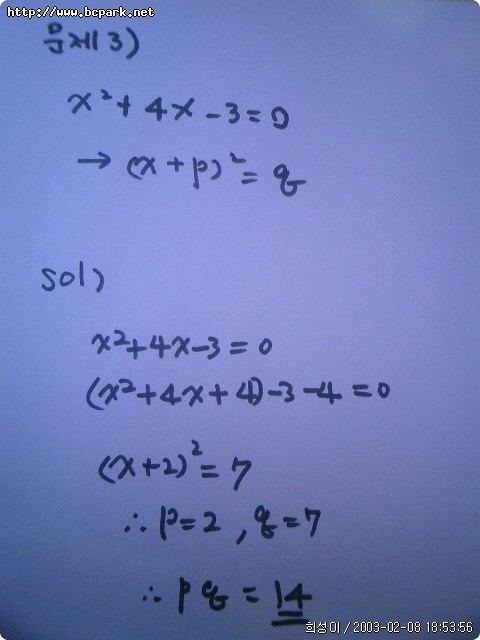 http://www.bcpark.net
문제3)
x²+4x-3=0
→ (x+p)²=q
sol)
x²+4x-3=0
(x²+4x+4)-3-4=0
(x+2)²=7
∴ p=2, q=7
∴ pq=14
희성이 / 2003-02-08 18:53:56